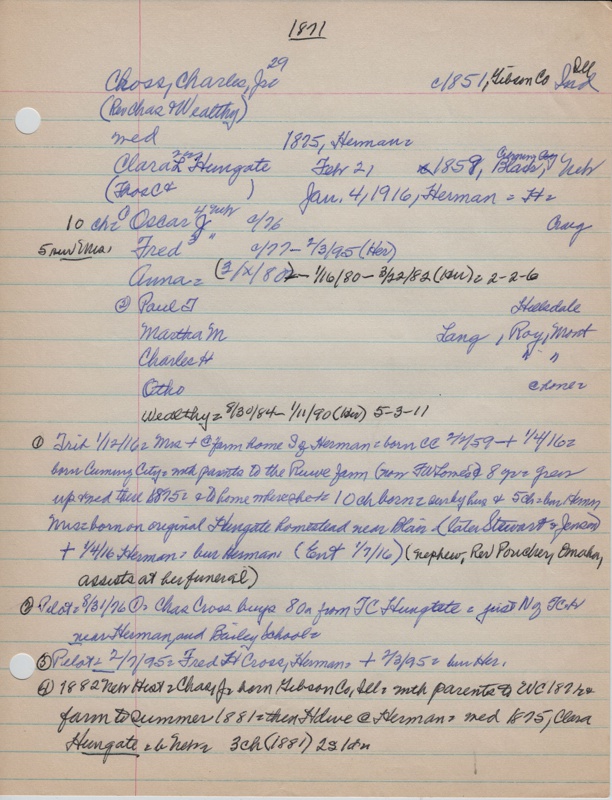 1871
Cross, Charles, Jr 29 c1851, Gibson Co Ill Ind
(Rev Chas & Wealthy)
med 1875, Herman =
Clara Hungate Feb 21, 1859, Cuming City Blair, Neb
(Thos C & ) Jan. 4, 1916, Herman = H=
10 ch = Oscar J 4 Neb c/76 Craig
5 surv Mrs. Fred 3 " c/77 - 2/3/95 (Her)
Anna = (3/x/80) - 1/16/80 - 3/22/82 (Her) = 2-2-6
② Paul T Hillsdale
Martha M Lang , Roy, Mont
Charles H " "
Otho
Wealthy = 8/30/84 - 1/11/90 (Her) 5-3-11
① Trib 1/12/16 = Mrs + @ farm home of Herman = born CC 2/2/59 + 1/4/16 =
born Cuming City = mth parents to the farm (now 8 yr = grew
up & med there 1875 = to home where she 10 ch born = surv by hus & 5 ch = bur Herman
Mrs = born on original Hungate homestead near Blair (later Stewart & Jensen)
+ 1/4/16 Herman = bur Herman (Ent 1/7/16) (nephew, Rev Poucher, Omaha,
assists at her funeral)
② Pilot = 8/31/76 ① = Chas Cross buys 80a from TC Hungate = just N of TCH
near Herman, and Bailey School =
③ Pilot = 2/7/95 = Fred H Cross, Herman = + 2/3/95 = bur Her.
④ 1882 Neb Hist = Chas, Jr born Gibson Co, Ill = mth parents to WC 1871 &
farm to summer 1881 = then Hdwe @ Herman = med 1875, Clara
Hungate = b Neb = 3 ch (1881) 2s 1dn